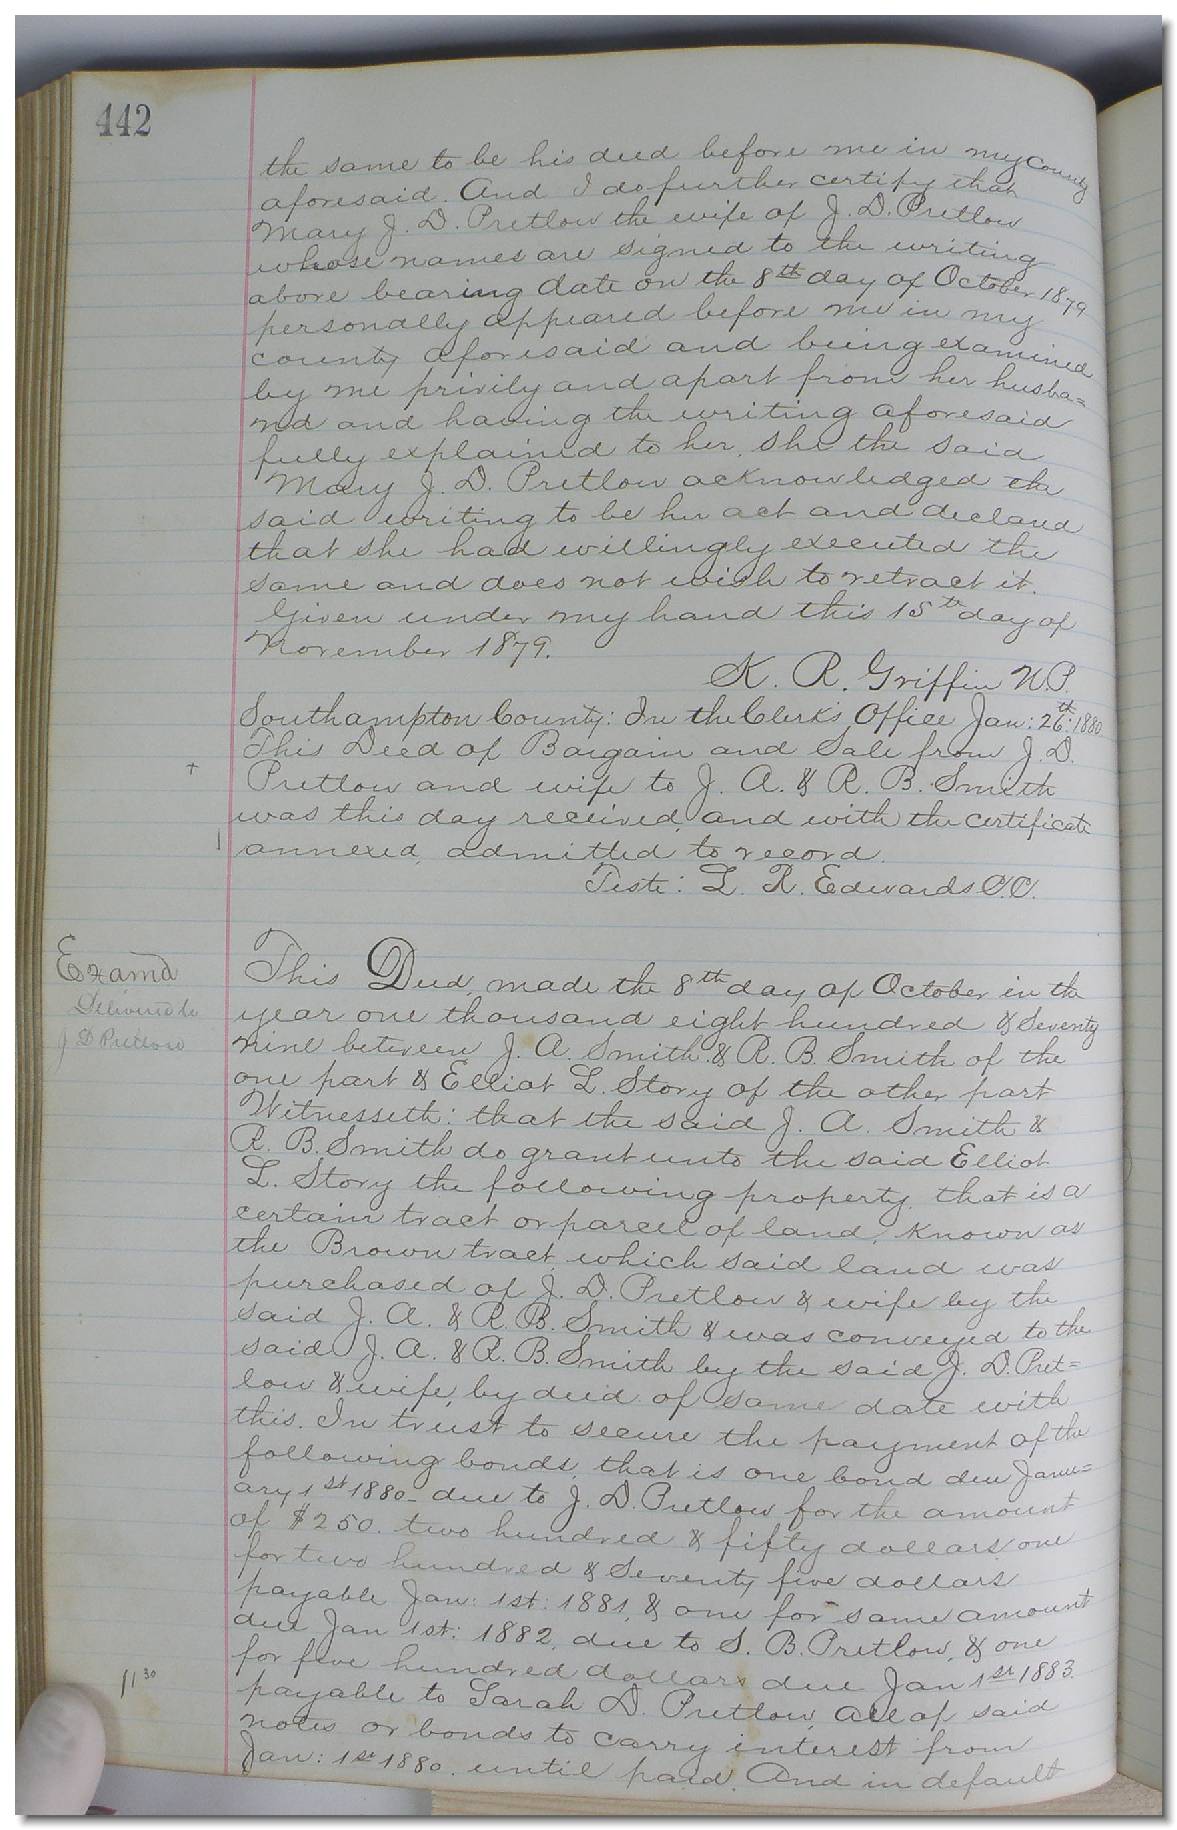 442
the same to be his deed before me in my county
aforesaid. And I do further certify that
Mary J. D. Pretlow the wife of J. D. Pretlow
whose names are signed to the writing
above bearing date on the 8th day of October 1879
personally appeared before me in my
county aforesaid and being examined
by me privily and apart from her husba=
nd and having the writing aforesaid
fully explained to her, she the said
Mary J. D. Pretlow acknowledged the
said writing to be her act and declared
that she had willingly executed the
same and does not wish to retract it.
Given under my hand this 15th day of
November 1879.
K. R. Griffin N.P.
Southampton County: In the Clerk's Office Jan: 26th: 1880
This Deed of Bargain and Sale from J. D.
Pretlow and wife to J. A. & R. B. Smith
was this day received, and with the certificate
annexed, admitted to record.
Teste: L. R. Edwards C.C.
Examd
Delivered to
J D Pretlow
This Deed, made the 8th day of October in the
year one thousand eight hundred & Seventy
nine between J. A. Smith & R. B. Smith of the
one part & Elliot L. Story of the other part
Witnesseth: that the said J. A. Smith &
R. B. Smith do grant unto the said Elliot
L. Story the following property, that is a
certain tract or parcel of land, known as
the Brown tract, which said land was
purchased of J. D. Pretlow & wife by the
said J. A. & R. B. Smith & was conveyed to the
said J. A. & R. B. Smith by the said J. D. Pret=
low & wife, by deed of same date with
this. In trust to secure the payment of the
following bonds, that is one bond due Janu=
ary 1st 1880 - due to J. D. Pretlow for the amount
of $250. two hundred & fifty dollars one
for two hundred & Seventy five dollars
payable Jan: 1st: 1881, & one for same amount
due Jan 1st: 1882, due to S. B. Pretlow, & one
for five hundred dollars due Jan 1st 1883.
payable to Sarah D. Pretlow, all of said
notes or bonds to carry interest from
Jan: 1st 1880. until paid. And in default
11 30